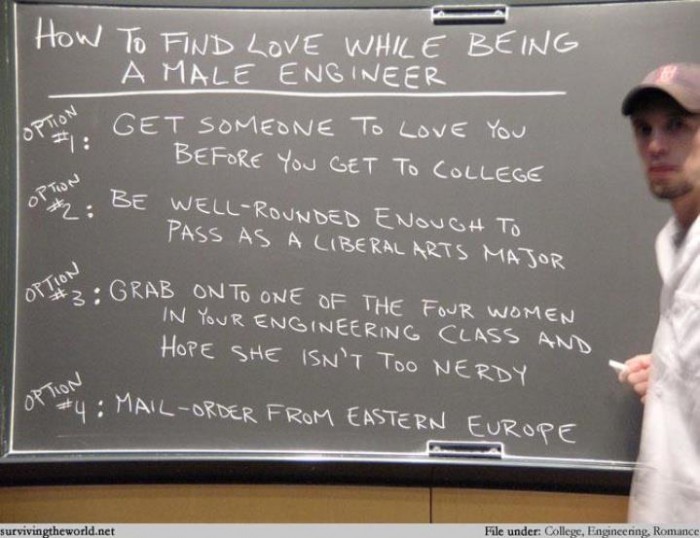 HOW TO FIND LOVE WHILE BEING
A MALE ENGINEER
OPTION #1: GET SOMEONE TO LOVE YOU
BEFORE YOU GET TO COLLEGE
OPTION #2: BE WELL-ROUNDED ENOUGH TO
PASS AS A LIBERAL ARTS MAJOR
OPTION #3: GRAB ONTO ONE OF THE FOUR WOMEN
IN YOUR ENGINEERING CLASS AND
HOPE SHE ISN'T TOO NERDY
OPTION #4: MAIL-ORDER FROM EASTERN EUROPE
survivingtheworld.net File under: College, Engineering, Romance